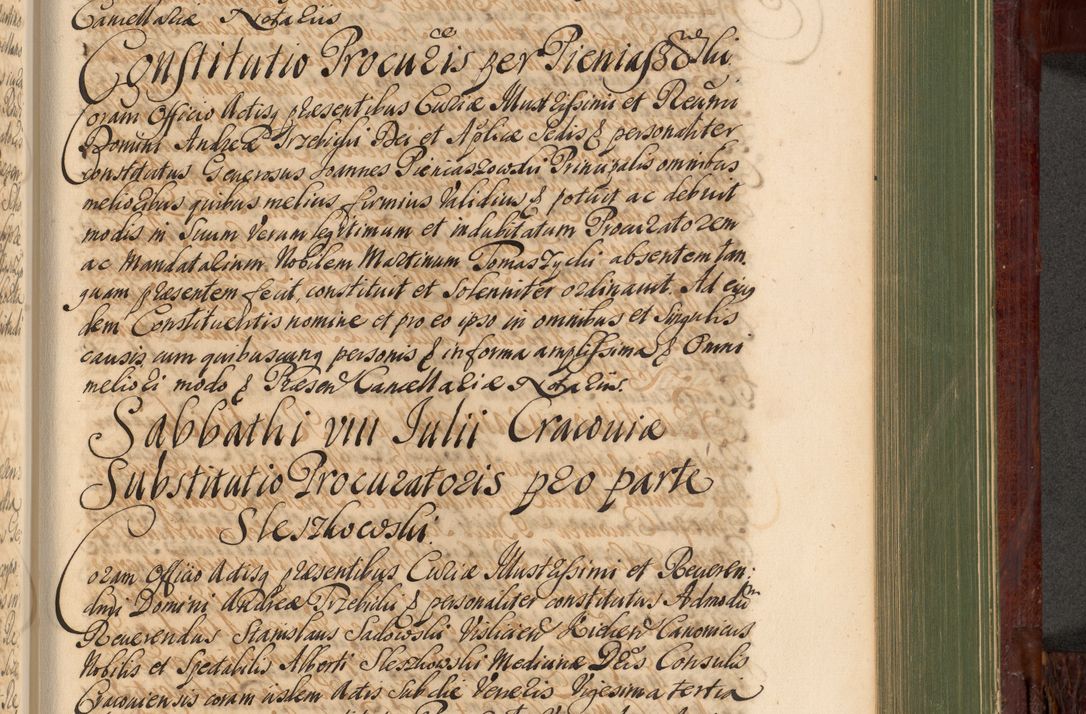 Cancellariæ Notariis
Constitutio Procuris per Pieniaszko
Coram Officio Actisq præsentibus Curiæ Illustrissimi et Reũmi
Domini Andreæ Trzebicki Dei et Aplicæ Sedis & personaliter
constitutus Generosus Joannes Pieniaszkowski Principalis omnibus
melioribus quibus melius firmius Validius & potuit ac debuit
modis in Suum Verum legitimum et indubitatum Procuratorem
ac Mandatarium Nobilem Martinum Tomaszycki absentem tan
quam præsentem fecit, constituit et Solenniter ordinauit. Ad eius
dem Constituentis nomine et pro eo ipso in omnibus et Singulis
causis, cum quibuscunq personis & in forma amplissima & Omni
meliori modo & Præsen Cancellariæ Notariis.
Sabbathi VIII Iulii Cracouiæ
Substitutio Procuratoris pro parte
Sleszkowski
Coram Officio Actisq præsentibus Curiæ Illustrissimi et Reueren:
dmi Domini Andreæ Trzebicki & personaliter constitutus Admodũ
Reuerendus Stanislaus Sadowski Vislicien Kielcen Canonicus
Nobilis et Spectabilis Alberti Sleszkowski Medicinæ Dris Consulis
Cracouiensis coram iisdem Actis sub die Veneris Vigesima tertia